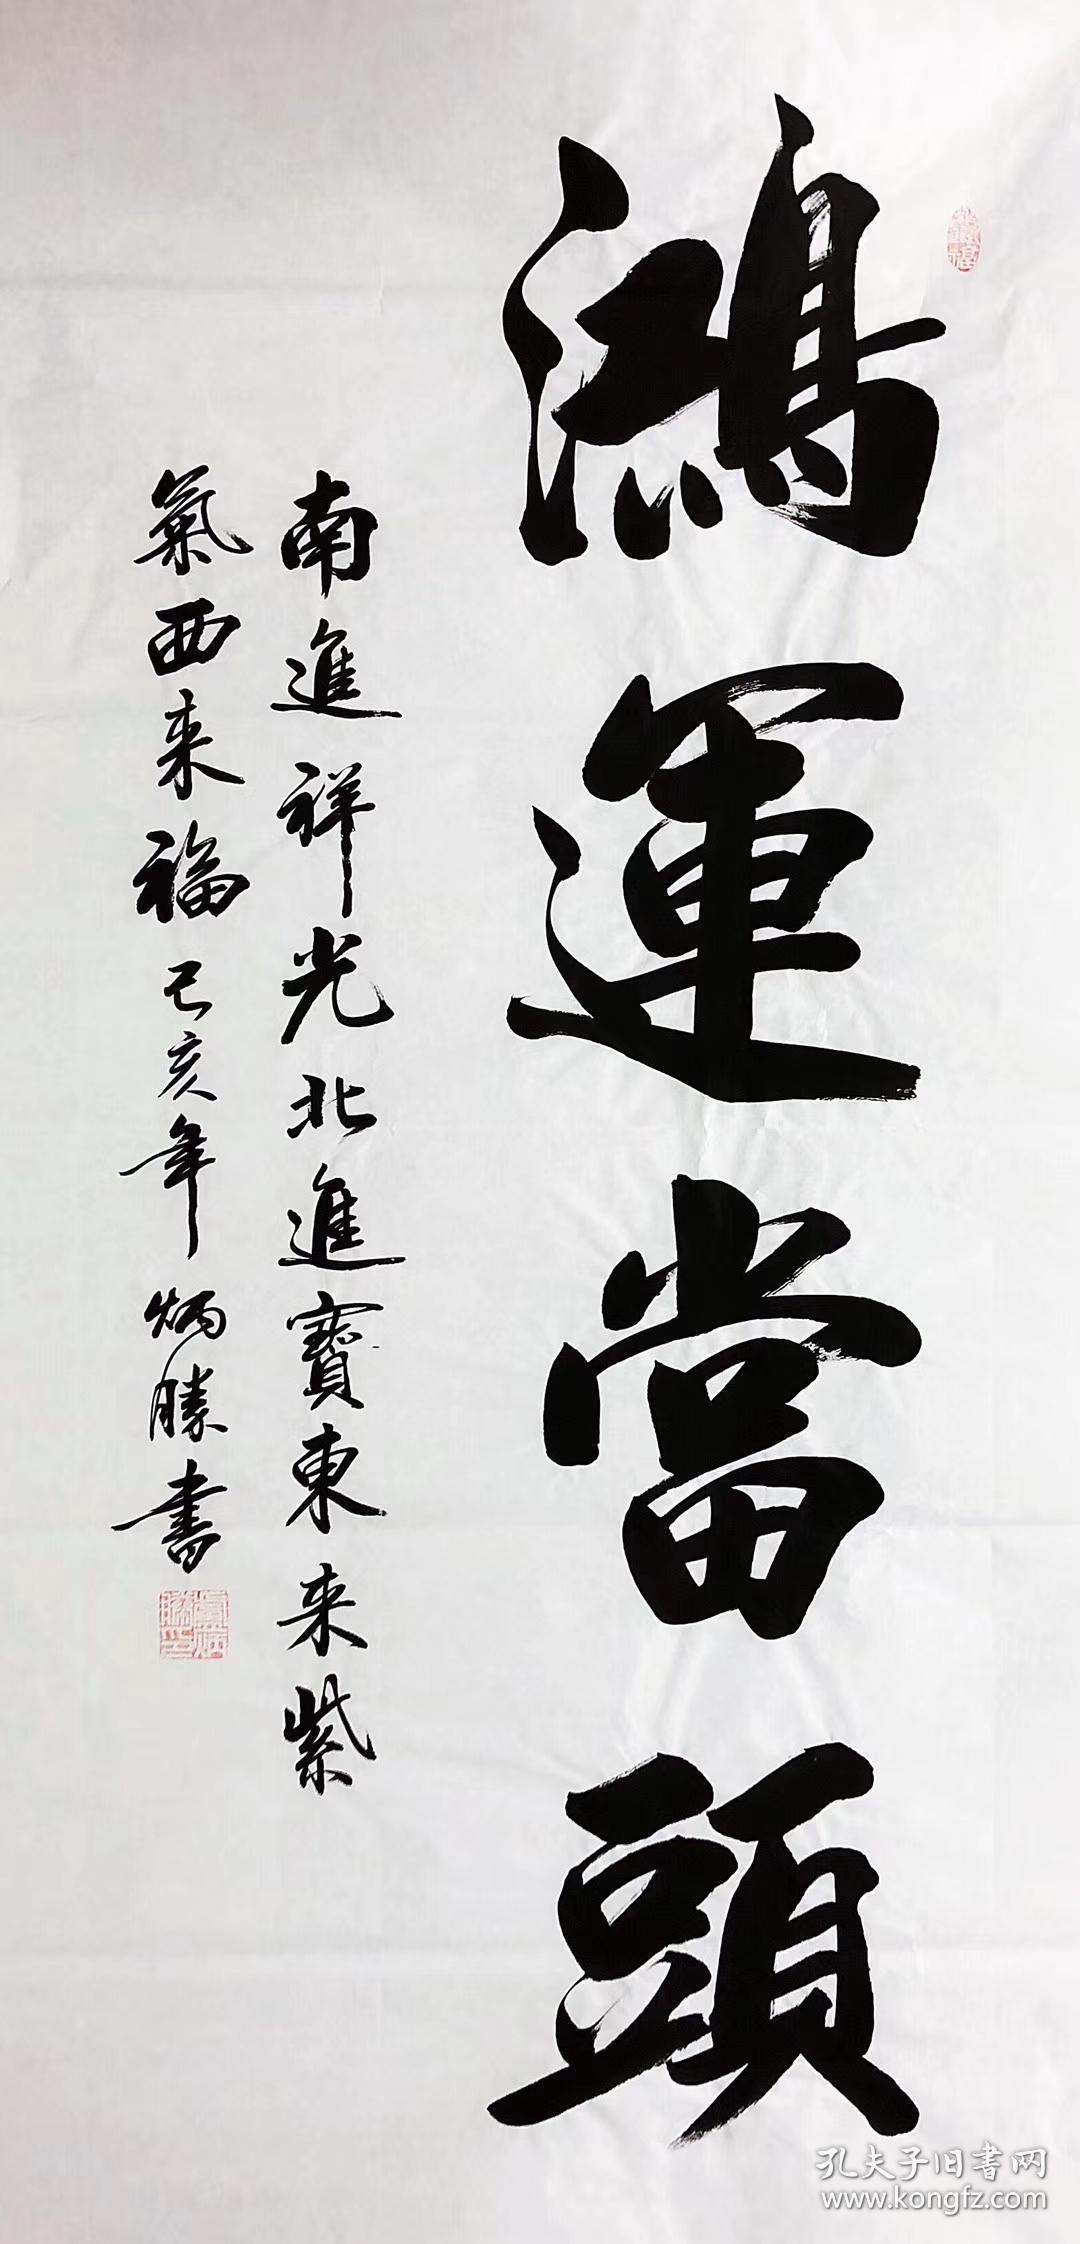 鴻運當頭
南進祥光北進寶東来紫
氣西来福己亥年炳勝書
孔夫子旧书网
www.kongfz.com